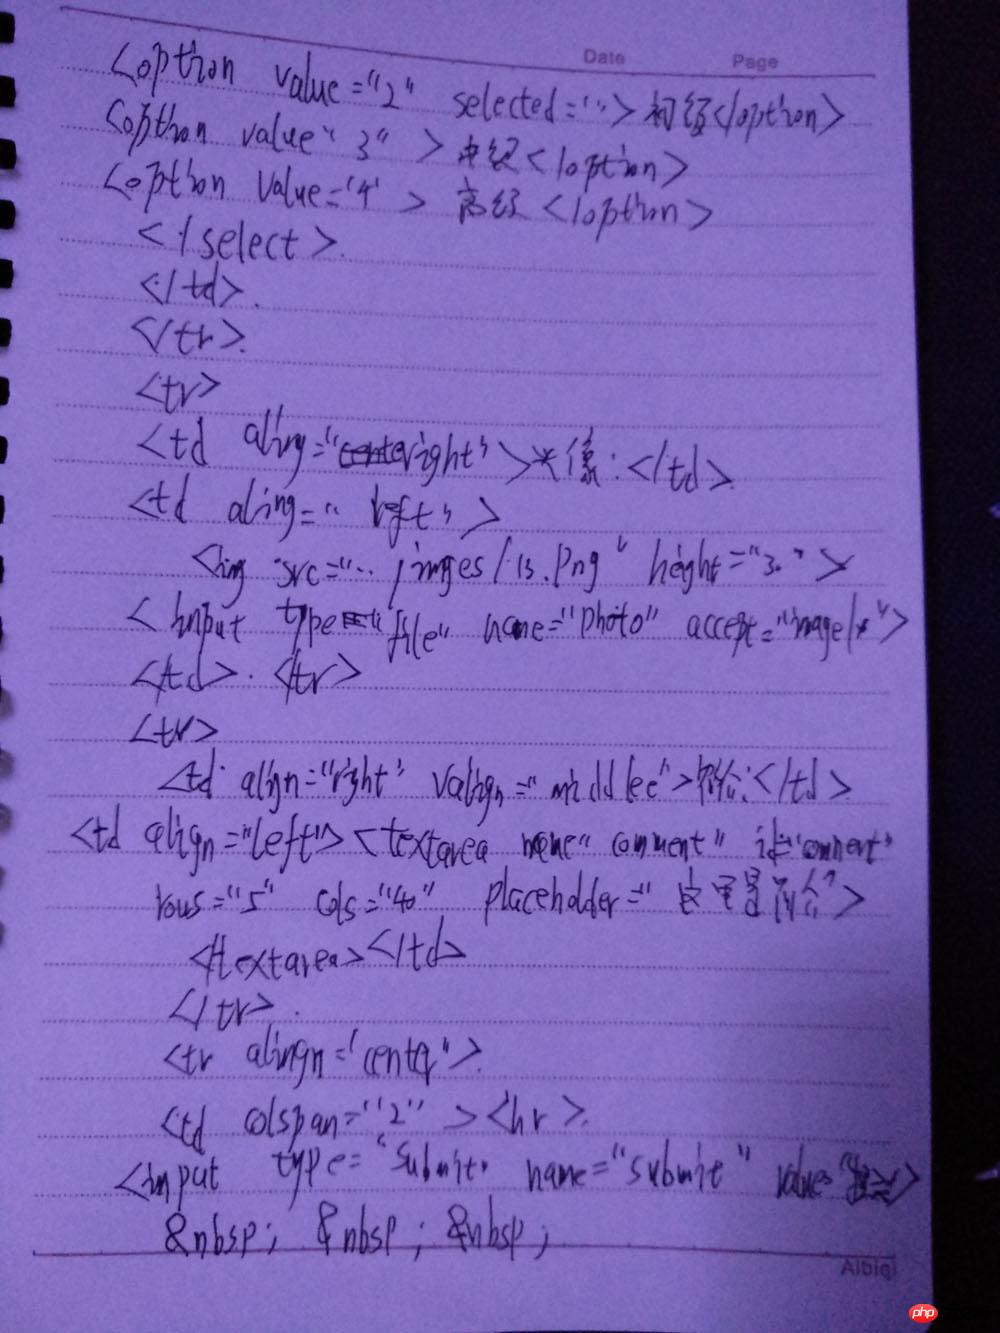 Date Page
<option value="2" selected="">初级</option>
<option value"3" >中级</option>
<option value="4" > 高级 </option>
</select>.
</td>.
</tr>.
<tr>
<td aling="right">头像:</td>.
<td aling=" left">
<img src="... height="3." >
<input type="file" name="photo" accept="image/*">
</td>. </tr>
<tr>
<td align="right" valign="middlee">简介:</td>.
<td align="left"><textarea name" comment" id="comment"
rows="5" cols="40" placeholder=" 这里是简介">
</textarea></td>
</tr>.
<tr alingn="center">.
<td colspan="2" ><hr>.
<input type="submit" name="submit" value=
&nbsp; &nbsp; &nbsp;
Albiqi
php